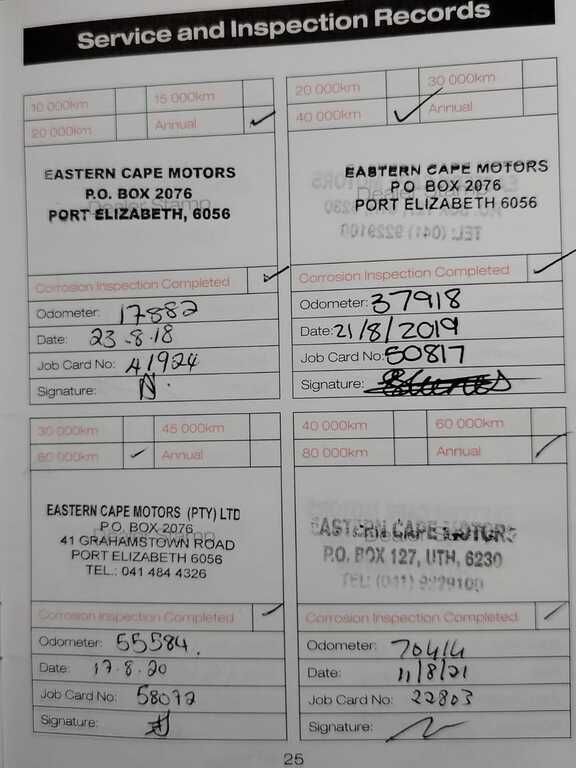 Service and Inspection Records
10 000km 15 000km
20 000km Annual
EASTERN CAPE MOTORS
P.O. BOX 2076
PORT ELIZABETH, 6056
Dealer Stamp
Corrosion Inspection Completed
Odometer: 17882
Date: 23-8-18
Job Card No: 41924
Signature:
20 000km 30 000km
40 000km Annual
EASTERN CAPE MOTORS
P O BOX 2076
PORT ELIZABETH 6056
Corrosion Inspection Completed
Odometer: 37918
Date: 21/8/2019
Job Card No: 50817
Signature:
30 000km 45 000km
60 000km Annual
EASTERN CAPE MOTORS (PTY) LTD
P.O. BOX 2076
41 GRAHAMSTOWN ROAD
PORT ELIZABETH 6056
TEL.: 041 484 4326
Corrosion Inspection Completed
Odometer: 55584.
Date: 17.8.20
Job Card No: 58072
Signature:
40 000km 60 000km
80 000km Annual
EASTERN CAPE MOTORS
P.O. BOX 127, UTH, 6230
TEL: (041) 9229100
Corrosion Inspection Completed
Odometer: 70414
Date: 11/8/21
Job Card No: 22803
Signature:
25